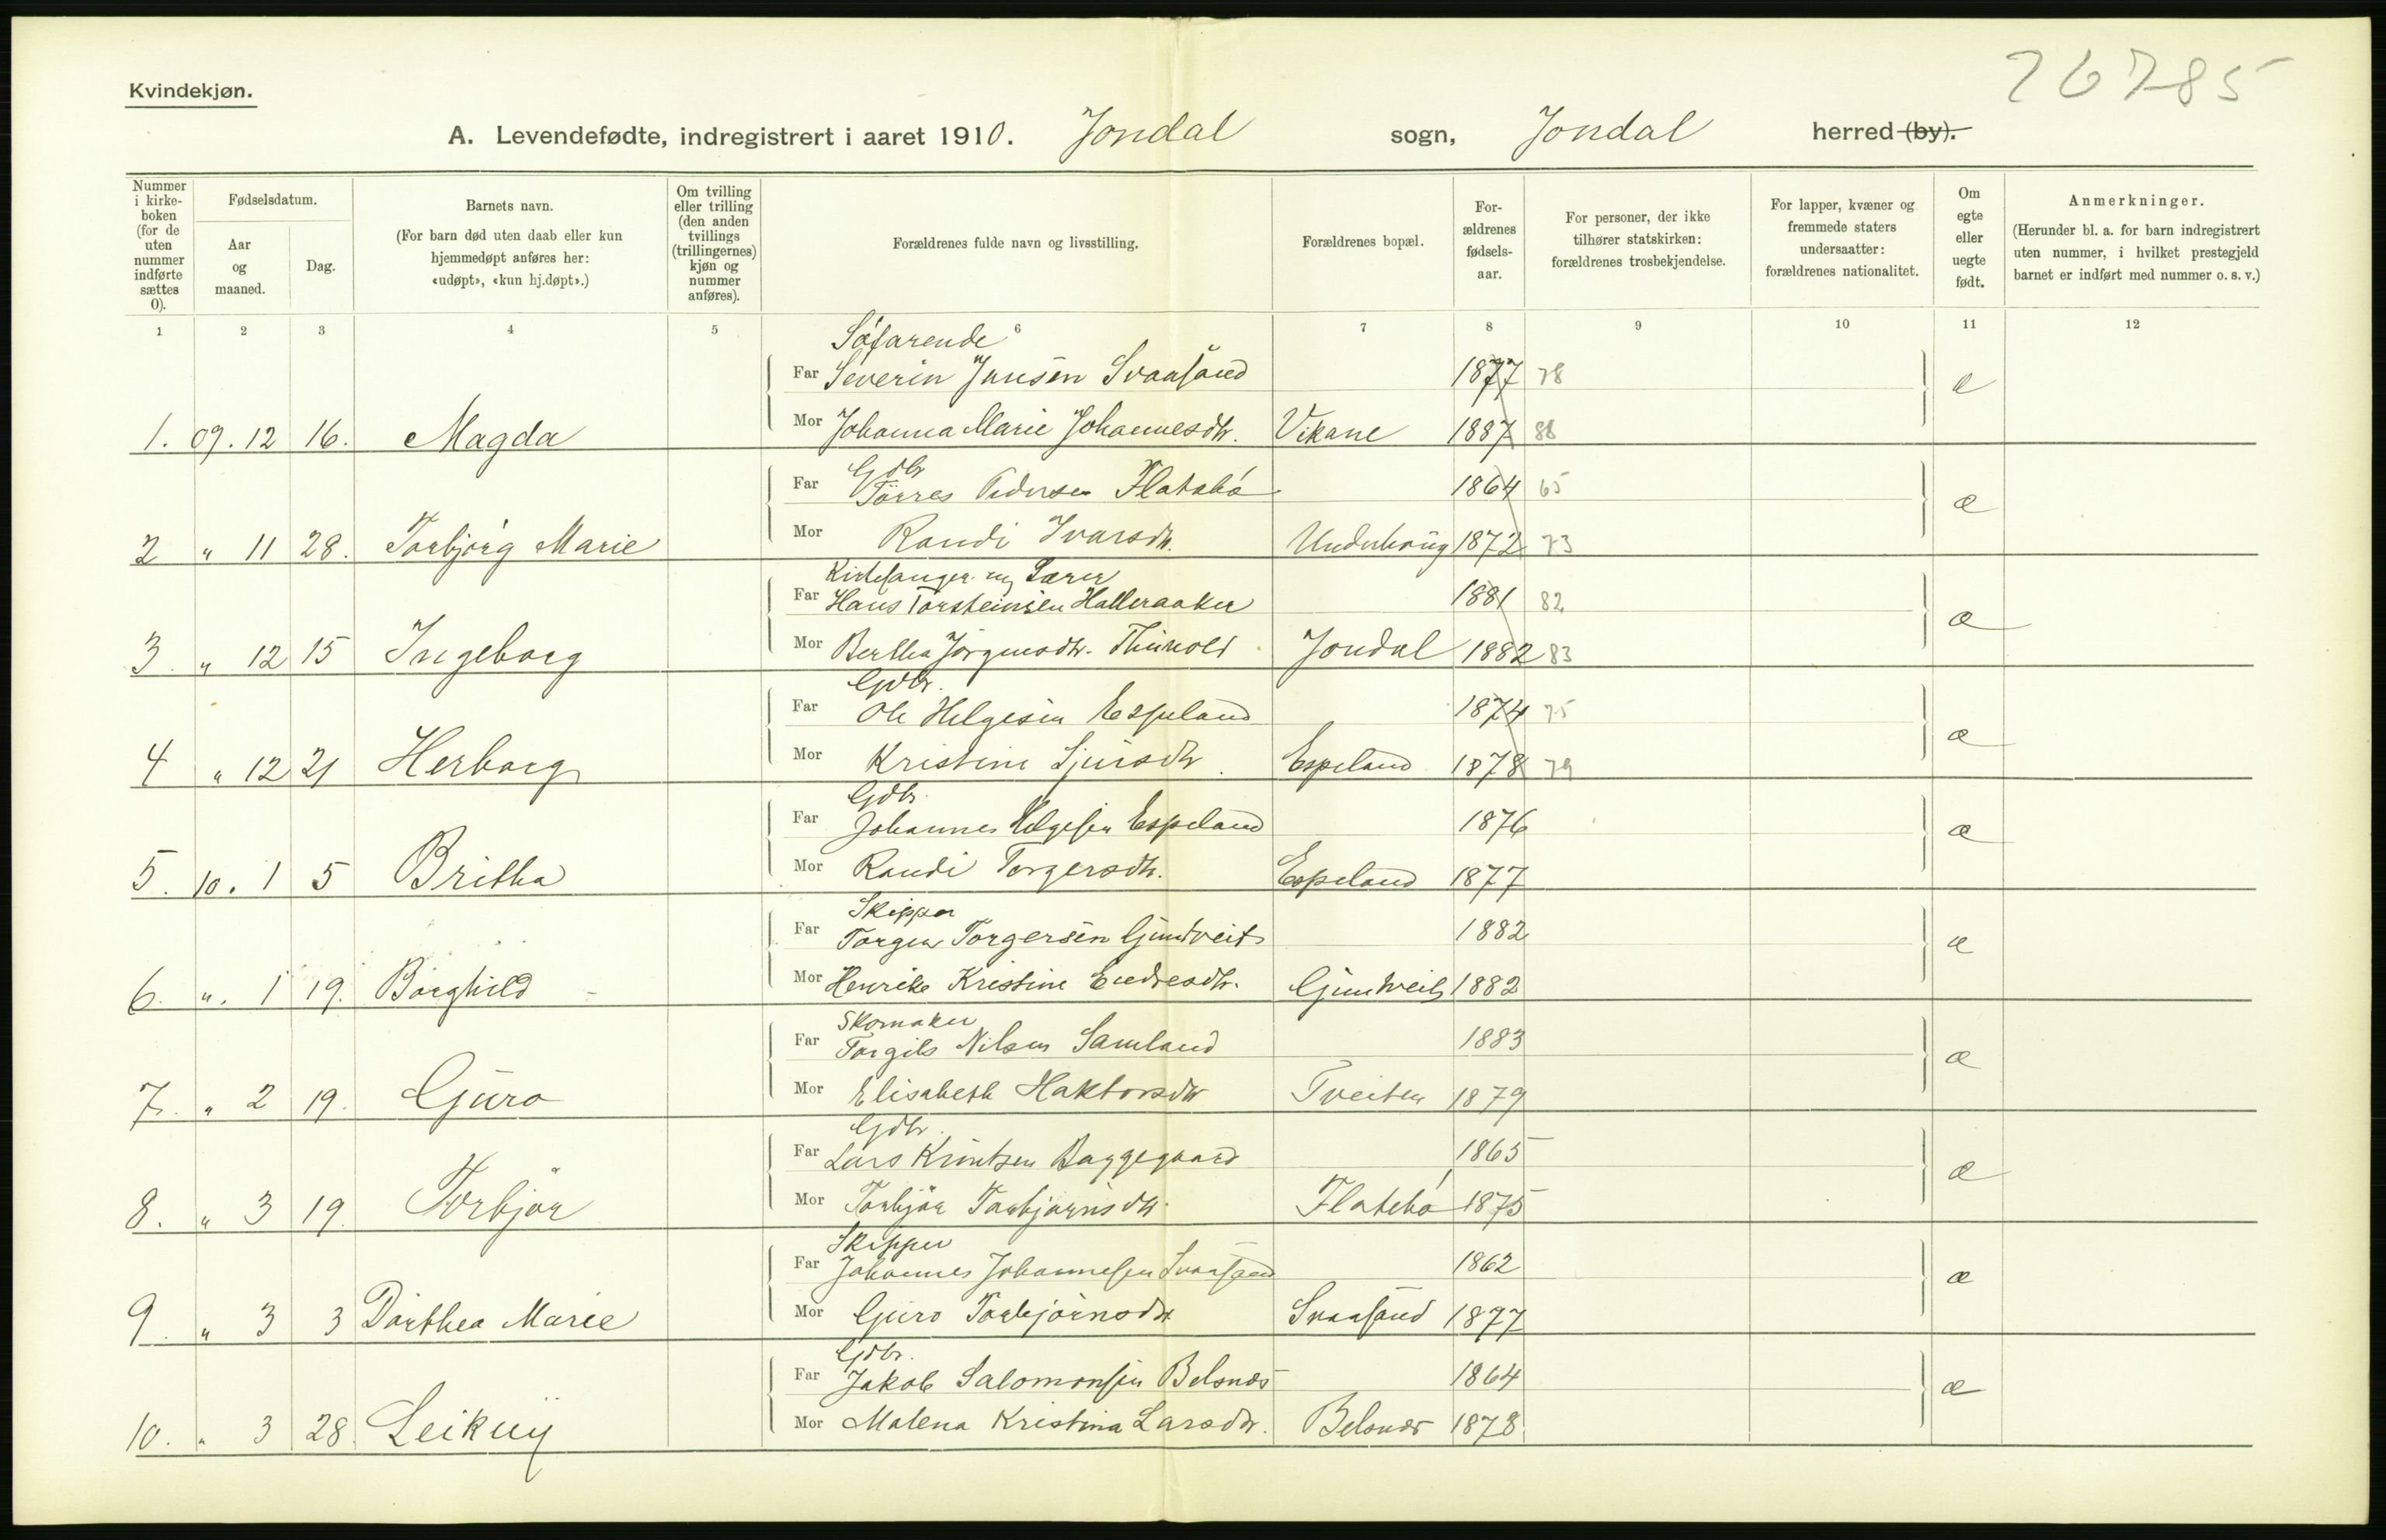 26785
Kvindekjøn.
A. Levendefødte, indregistrert i aaret 1910. Jondal sogn, Jondal herred (by).
Nummer i kirke-boken (for de uten nummer indførte sættes 0).
Fødselsdatum.
Aar og maaned.
Dag.
Barnets navn.
(For barn død uten daab eller kun hjemmedøpt anføres her: «udøpt», «kun hj.døpt».)
Om tvilling eller trilling (den anden tvillings (trillingernes) kjøn og nummer anføres).
Forældrenes fulde navn og livsstilling.
Forældrenes bopæl.
For-ældrenes fødsels-aar.
For personer, der ikke tilhører statskirken: forældrenes trosbekjendelse.
For lapper, kvæner og fremmede staters undersaatter: forældrenes nationalitet.
Om egte eller uegte født.
Anmerkninger.
(Herunder bl. a. for barn indregistrert uten nummer, i hvilket prestegjeld barnet er indført med nummer o. s. v.)
1 2 3 4 5 6 7 8 9 10 11 12
Søfarende
Far Severin Jansen Svaasand 1877 78 æ
1. 09. 12 16. Magda Mor Johanna Marie Johannesdtr. Vikane 1887 88
Gdbr
Far Tørres Pedersen Flatebø 1864 65 æ
2 " 11 28. Torbjørg Marie Mor Randi Ivarsdtr. Underhaug 1872 73
Kirkesanger og Lærer
Far Hans Torsteinsen Halleraaker 1881 82 æ
3. " 12 15 Ingeborg Mor Bertha Jørgensdtr. Jondal 1882 83
Gdbr.
Far Ole Helgesen Espeland 1874 75 æ
4 " 12 21 Herborg Mor Kristine Sjursdtr. Espeland 1878 79
Gdbr.
Far Johannes Helgesen Espeland 1876 æ
5. 10. 1 5 Britha Mor Randi Torgersdtr. Espeland 1877
Skipper
Far Torger Torgersen Gjuntveit 1882 æ
6. ". 1 19. Borghild Mor Henrike Kristine Endresdtr. Gjuntveit 1882
Skomaker
Far Torgils Nilsen Samland 1883 æ
7. " 2 19. Guro Mor Elisabeth Haktorsdtr Tveiten 1879
Gdbr.
Far Lars Knutsen Baggegaard 1865 æ
8. " 3 19. Torbjør Mor Torbjør Torbjørnsdtr. Flatebø 1875
Skipper
Far Johannes Johannesen Svaasand 1862 æ
9. " 3 3 Dorthea Marie Mor Guro Torbjørnsdtr Svaasand 1877
Gdbr.
Far Jakob Salomonsen Belsnæs 1864 æ
10. " 3 28. Leikny Mor Malena Kristina Larsdtr. Belsnæs 1878